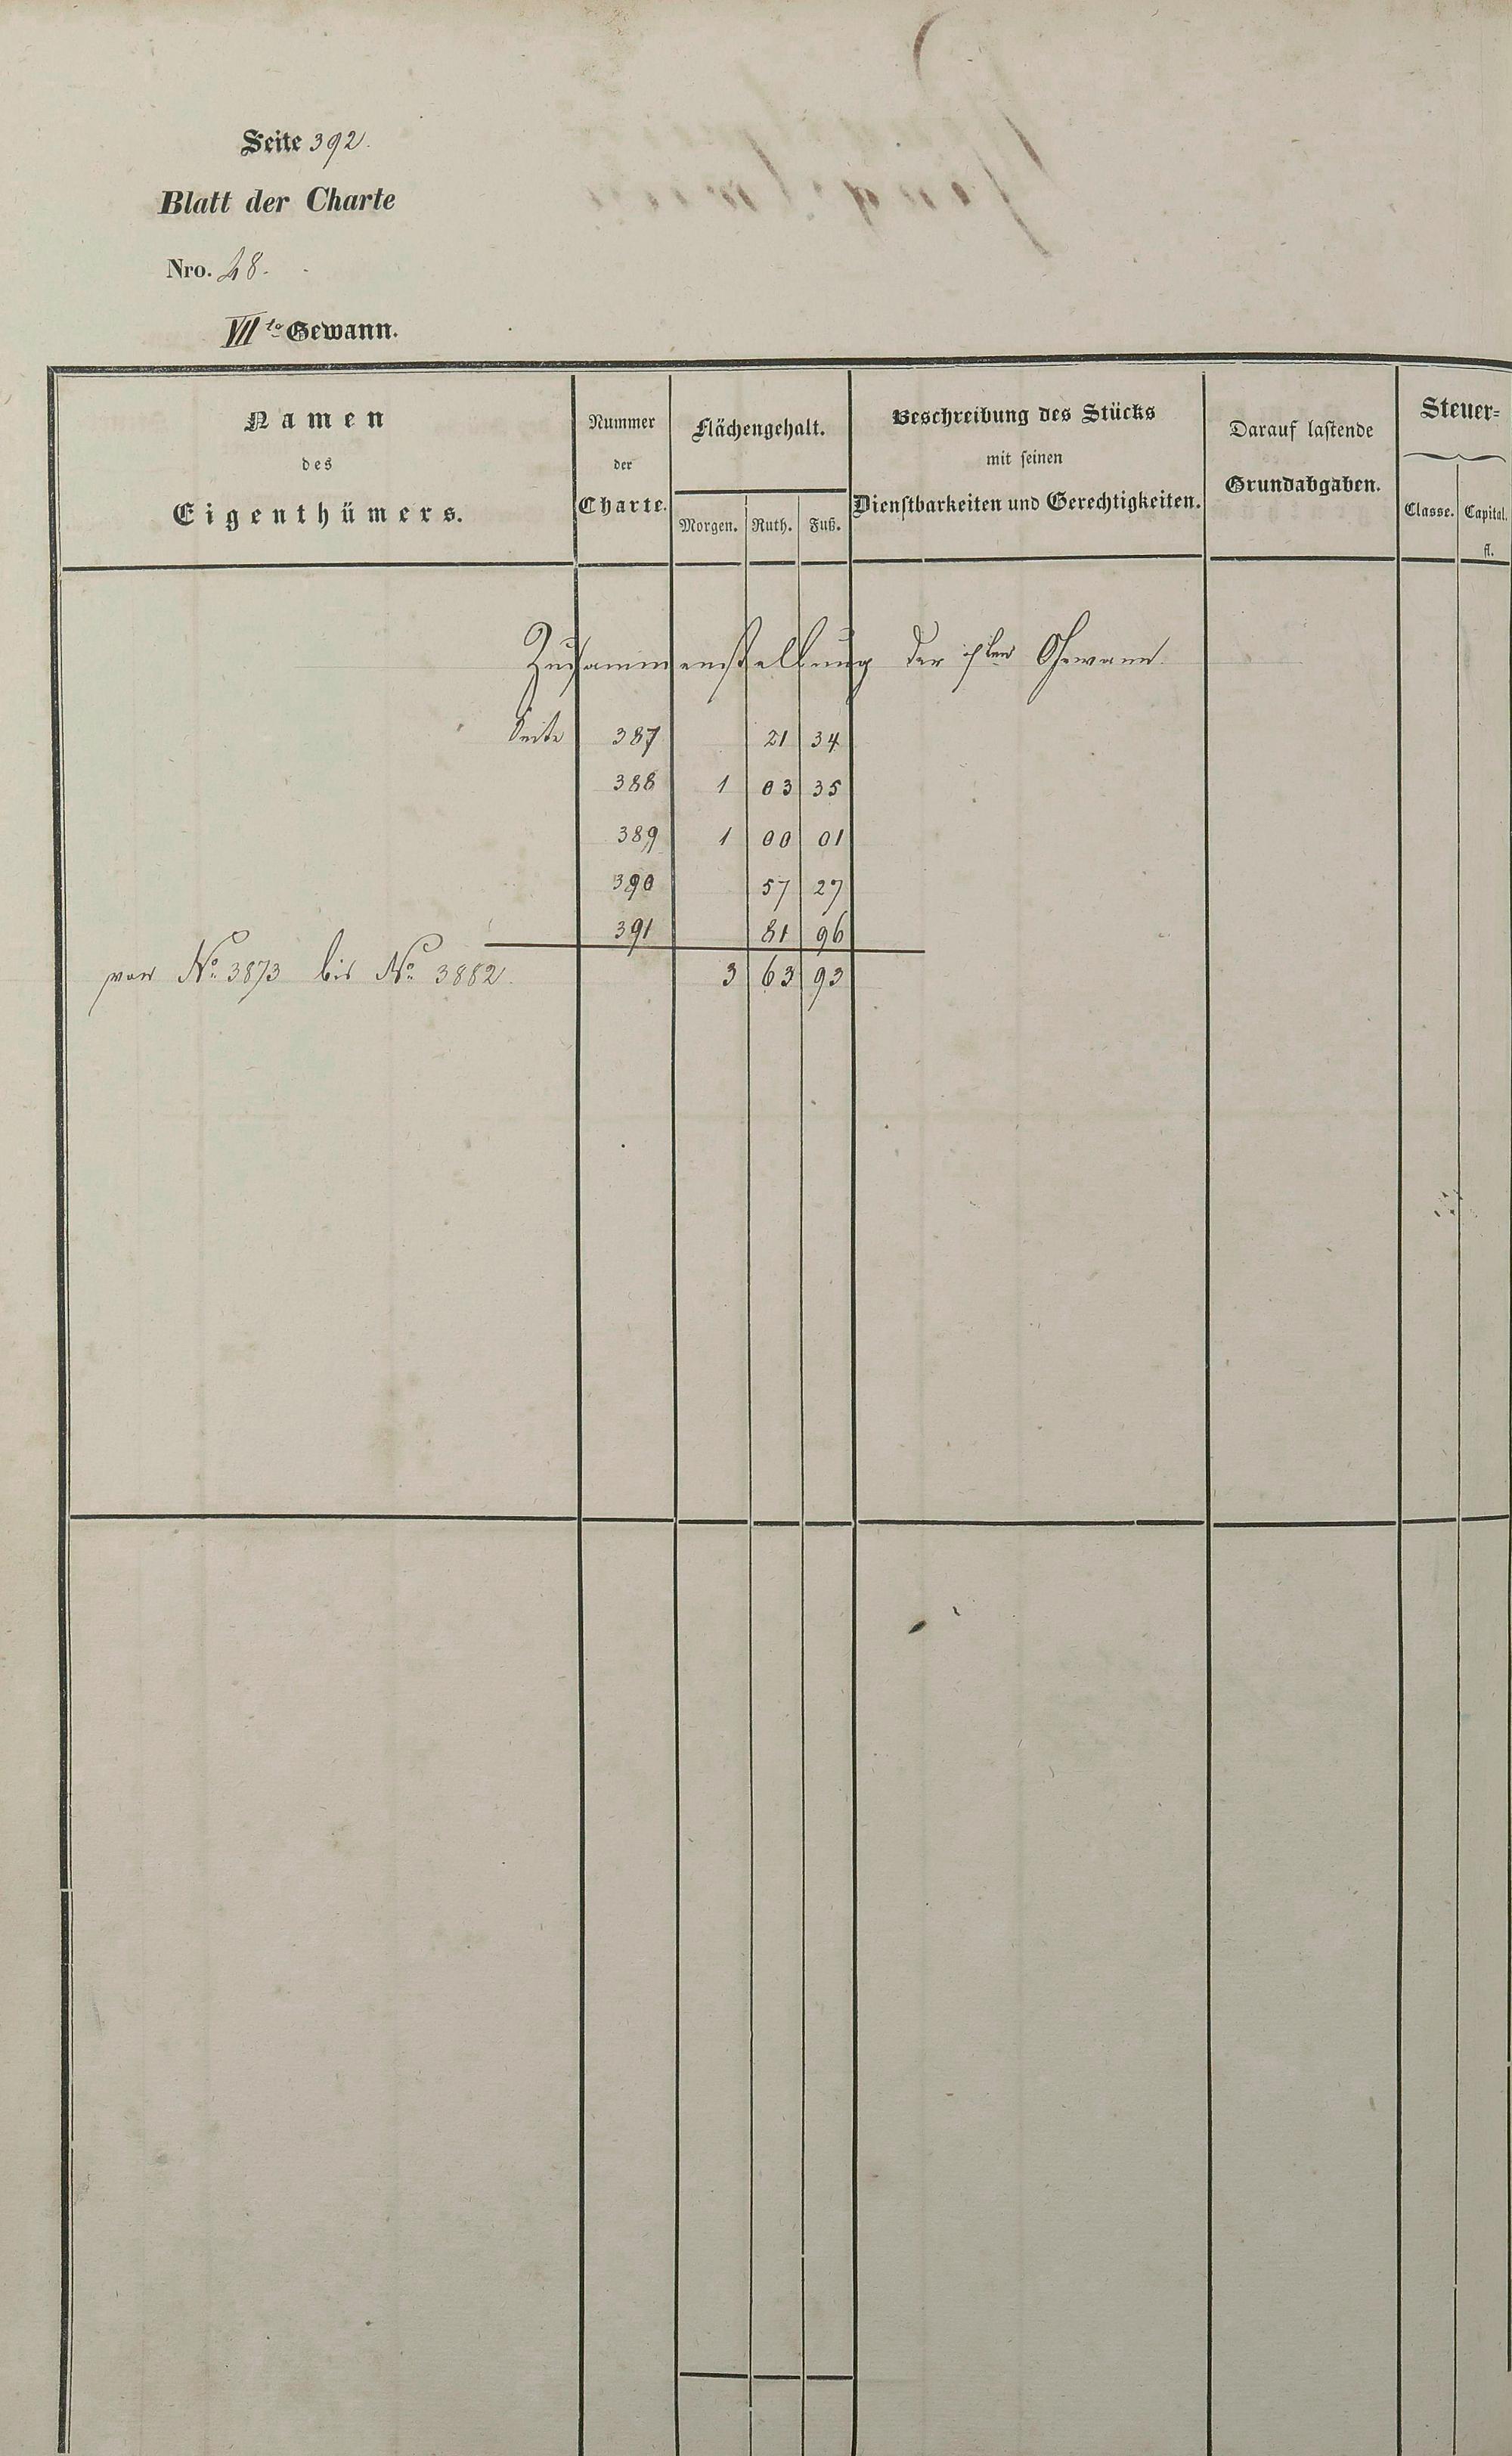 Seite 392.
Blatt der Charte
Nro. 48.
VII te Gewann.
Namen des Eigenthümers.
Nummer der Charte.
Flächengehalt.
Morgen. Ruth. Fuß.
Beschreibung des Stücks mit seinen Dienstbarkeiten und Gerechtigkeiten.
Darauf lastende Grundabgaben.
Steuer-
Classe. Capital.
fl.
Zusammenstellung der Gewann.
Seite 387 21 34
388 1 03 35
389 1 00 01
390 57 27
391 81 96
von No. 3873 bis No. 3882. 3 63 93